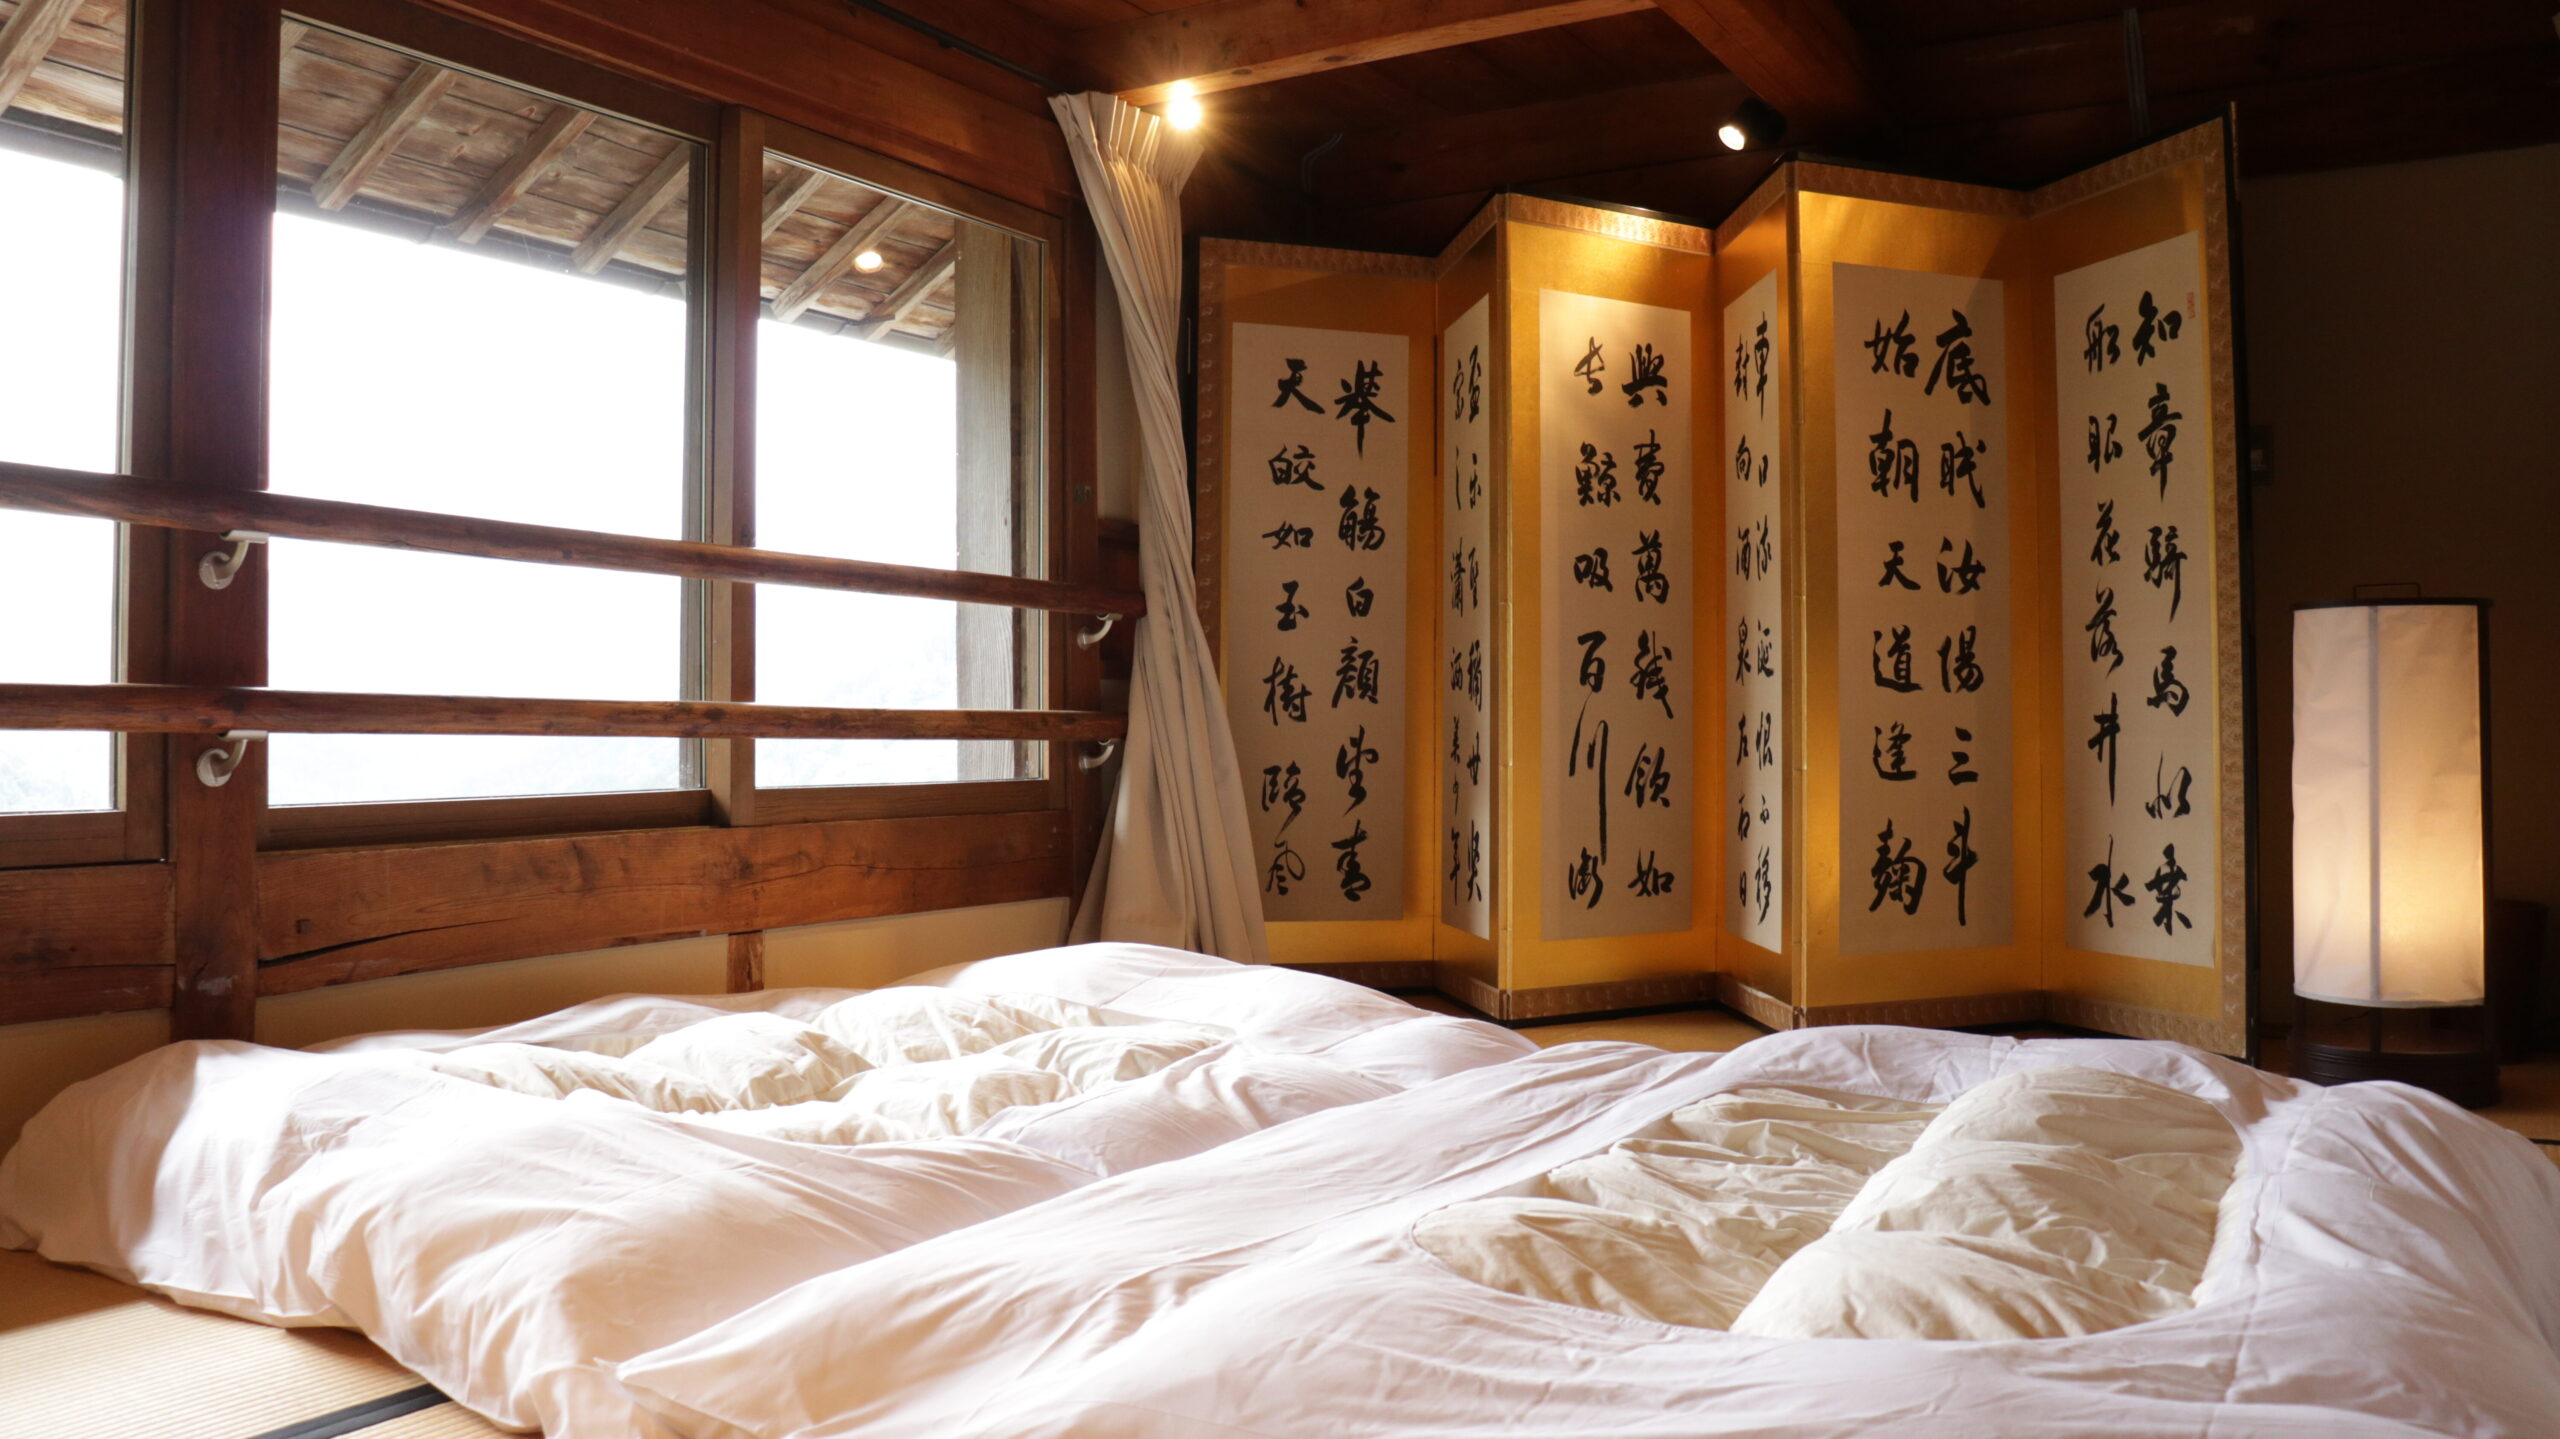 知章騎馬似乗
船眼花落井水
底眠汝陽三斗
始朝天道逢麹
車口流涎恨不移
封向酒泉左相日
興費萬錢飲如
長鯨吸百川銜
盃樂聖稱世賢
宗之瀟洒美少年
舉觴白顔望青
天皎如玉樹臨風